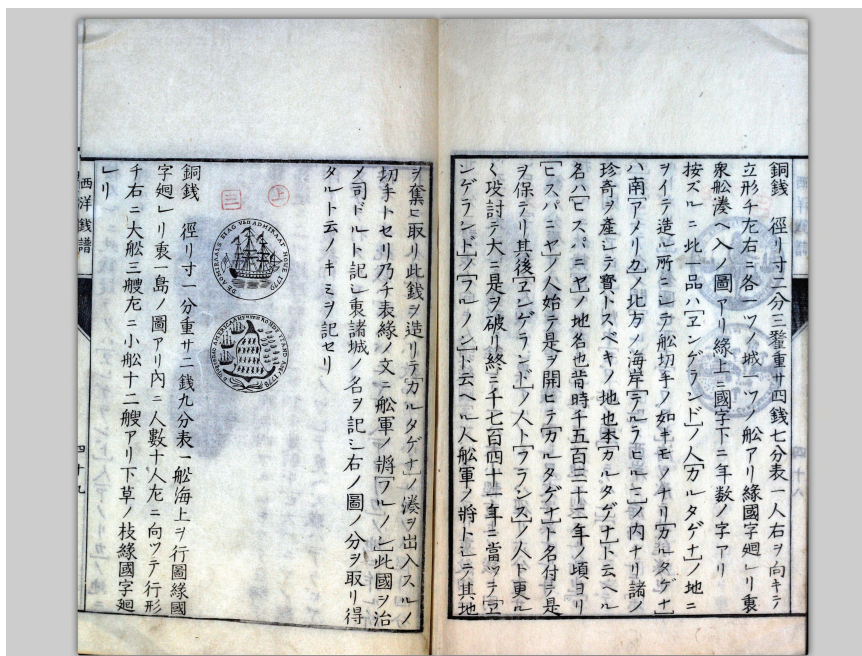 銅錢　徑リ寸二分三釐重サ四錢七分表一人右ヲ向キテ
立形チ左右ニ各一ツノ城一ツノ船アリ緣國字廻レリ裏
衆船湊ヘ入ノ圖アリ緣上ニ國字下ニ年數ノ字アリ
按ズルニ此一品ハ[ヱンゲランド]ノ人[カルタゲナ]ノ地ニ
ヲイテ造ル所ニシテ船切手ノ如キモノナリ[カルタゲナ]
ハ南[アメリカ]ノ北方ノ海岸[テルラヒルマ]ノ内ナリ諸ノ
珍奇ヲ產シテ寶トスベキノ地也本[カルタゲナ]ト云ヘル
名ハ[ヒスパニヤ]ノ地名也昔時千五百三十二年ノ頃ヨリ
[ヒスパニヤ]ノ人始テ是ヲ開ヒテ[カルタゲナ]ト名付テ是
ヲ保テリ其後[ヱンゲランド]ノ人ト[フランス]ノ人ト更ル
く攻討テ大ニ是ヲ破リ終ニ千七百四十一年ニ當ツテ[ヱ
ンゲランド]ノ[フルノン]ト云ヘル人船軍ノ將トシテ其地
ヲ奪ヒ取リ此錢ヲ造リテ[カルタゲナ]ノ湊ヲ出入スルノ
切手トセリ乃チ表緣ノ文ニ船軍ノ將[フルノン]此國ヲ治
メ司ドルト記シ裏諸城ノ名ヲ記シ右ノ圖ノ分ヲ取リ得
タルト云ノキミヲ記セリ
上
三
DE ADMIRAALS FLAG VAN ADMIRAAL HOWE 1779
銅錢　徑リ寸一分重サ二錢九分表一船海上ヲ行圖緣國
字廻レリ裏一島ノ圖アリ内ニ人數十人左ニ向ツテ行形
チ右ニ大船三艘左ニ小船十二艘アリ下草ノ枝緣國字廻
レリ
西洋錢譜
四十九